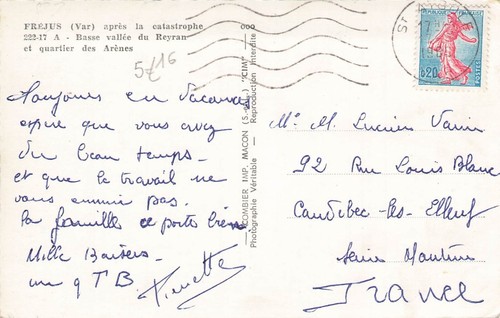 FRÉJUS (Var) après la catastrophe
222-17 A - Basse vallée du Reyran
et quartier des Arènes
5/16
Toujours en vacances
espère que vous avez
du beau temps -
et que le travail ne
vous ennuie pas.
la famille se porte bien
Mille Baisers -
une q T B. Pierrette
COMBIER IMP. MACON (S.-&-L.) "CIM"
Photographie Véritable - Reproduction interdite
0,20
POSTES
Mr M. Lucien
92 Rue Louis Blanc
Caudebec-les-Elbeuf
Seine Maritime
France